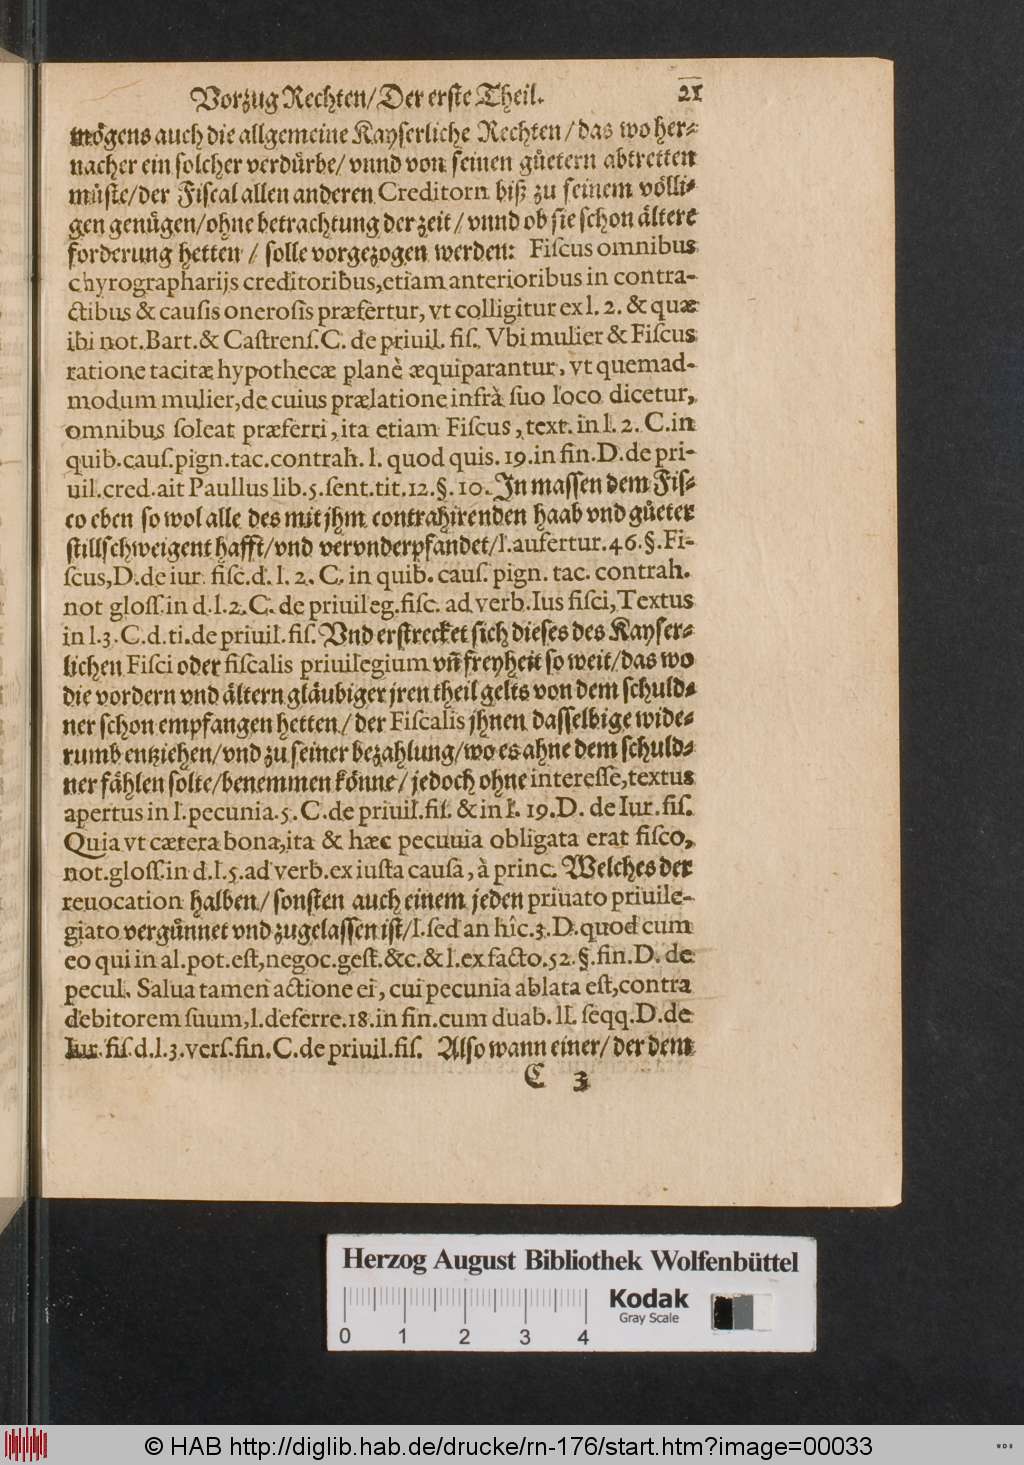 Vorzug Rechten/ Der erste Theil. 21
mögens auch die allgemeine Kayserliche Rechten/ das wo her-
nacher ein solcher verdürbe/ vnnd von seinen güetern abtretten
müste/ der Fiscal allen anderen Creditorn biß zu seinem völli-
gen genügen/ ohne betrachtung der zeit/ vnnd ob sie schon ältere
forderung hetten/ solle vorgezogen werden: Fiſcus omnibus
chyrographarijs creditoribus, etiam anterioribus in contra-
ctibus & cauſis oneroſis præfertur, vt colligitur ex l. 2. & quæ
ibi not. Bart. & Caſtrenſ. C. de priuil. fiſ. Vbi mulier & Fiſcus
ratione tacitæ hypothecæ planè æquiparantur, vt quemad-
modum mulier, de cuius prælatione infrà ſuo loco dicetur,
omnibus ſoleat præferri, ita etiam Fiſcus, text. in l. 2. C. in
quib. cauſ. pign. tac. contrah. l. quod quis. 19. in fin. D. de pri-
uil. cred. ait Paullus lib. 5. ſent. tit. 12. §. 10. In massen dem Fis-
co eben so wol alle des mit jhm contrahirenden haab vnd güeter
stillschweigent hafft/ vnd vervnderpfandet/ l. aufertur. 46. §. Fi-
ſcus, D. de iur. fiſc. d. l. 2. C. in quib. cauſ. pign. tac. contrah.
not gloſſ. in d. l. 2. C. de priuileg. fiſc. ad verb. Ius fiſci, Textus
in l. 3. C. d. ti. de priuil. fiſ. Vnd erstrecket sich dieses des Kayser-
lichen Fiſci oder fiſcalis priuilegium vn̄ freyheit so weit/ das wo
die vordern vnd ältern gläubiger jren theil gelts von dem schuld-
ner schon empfangen hetten/ der Fiſcalis jhnen dasselbige wide-
rumb entziehen/ vnd zu seiner bezahlung/ wo es ahne dem schuld-
ner fählen solte/ benemmen könne/ jedoch ohne intereſſe, textus
apertus in l. pecunia. 5. C. de priuil. fiſ. & in l. 19. D. de Iur. fiſ.
Quia vt cætera bona, ita & hæc pecuuia obligata erat fiſco,
not. gloſſ. in d. l. 5. ad verb. ex iuſta cauſa, à princ. Welches der
reuocation halben/ sonsten auch einem jeden priuato priuile-
giato vergünnet vnd zugelassen ist/ l. ſed an hîc. 3. D. quod cum
eo qui in al. pot. eſt, negoc. geſt. &c. & l. ex facto. 52. §. fin. D. de
pecul. Salua tamen actione ei, cui pecunia ablata eſt, contra
debitorem ſuum, l. deferre. 18. in fin. cum duab. ll. ſeqq. D. de
Iur. fiſ. d. l. 3. verſ. fin. C. de priuil. fiſ. Also wann einer/ der dem
C 3
Herzog August Bibliothek Wolfenbüttel
Kodak
Gray Scale
0 1 2 3 4
© HAB http://diglib.hab.de/drucke/rn-176/start.htm?image=00033